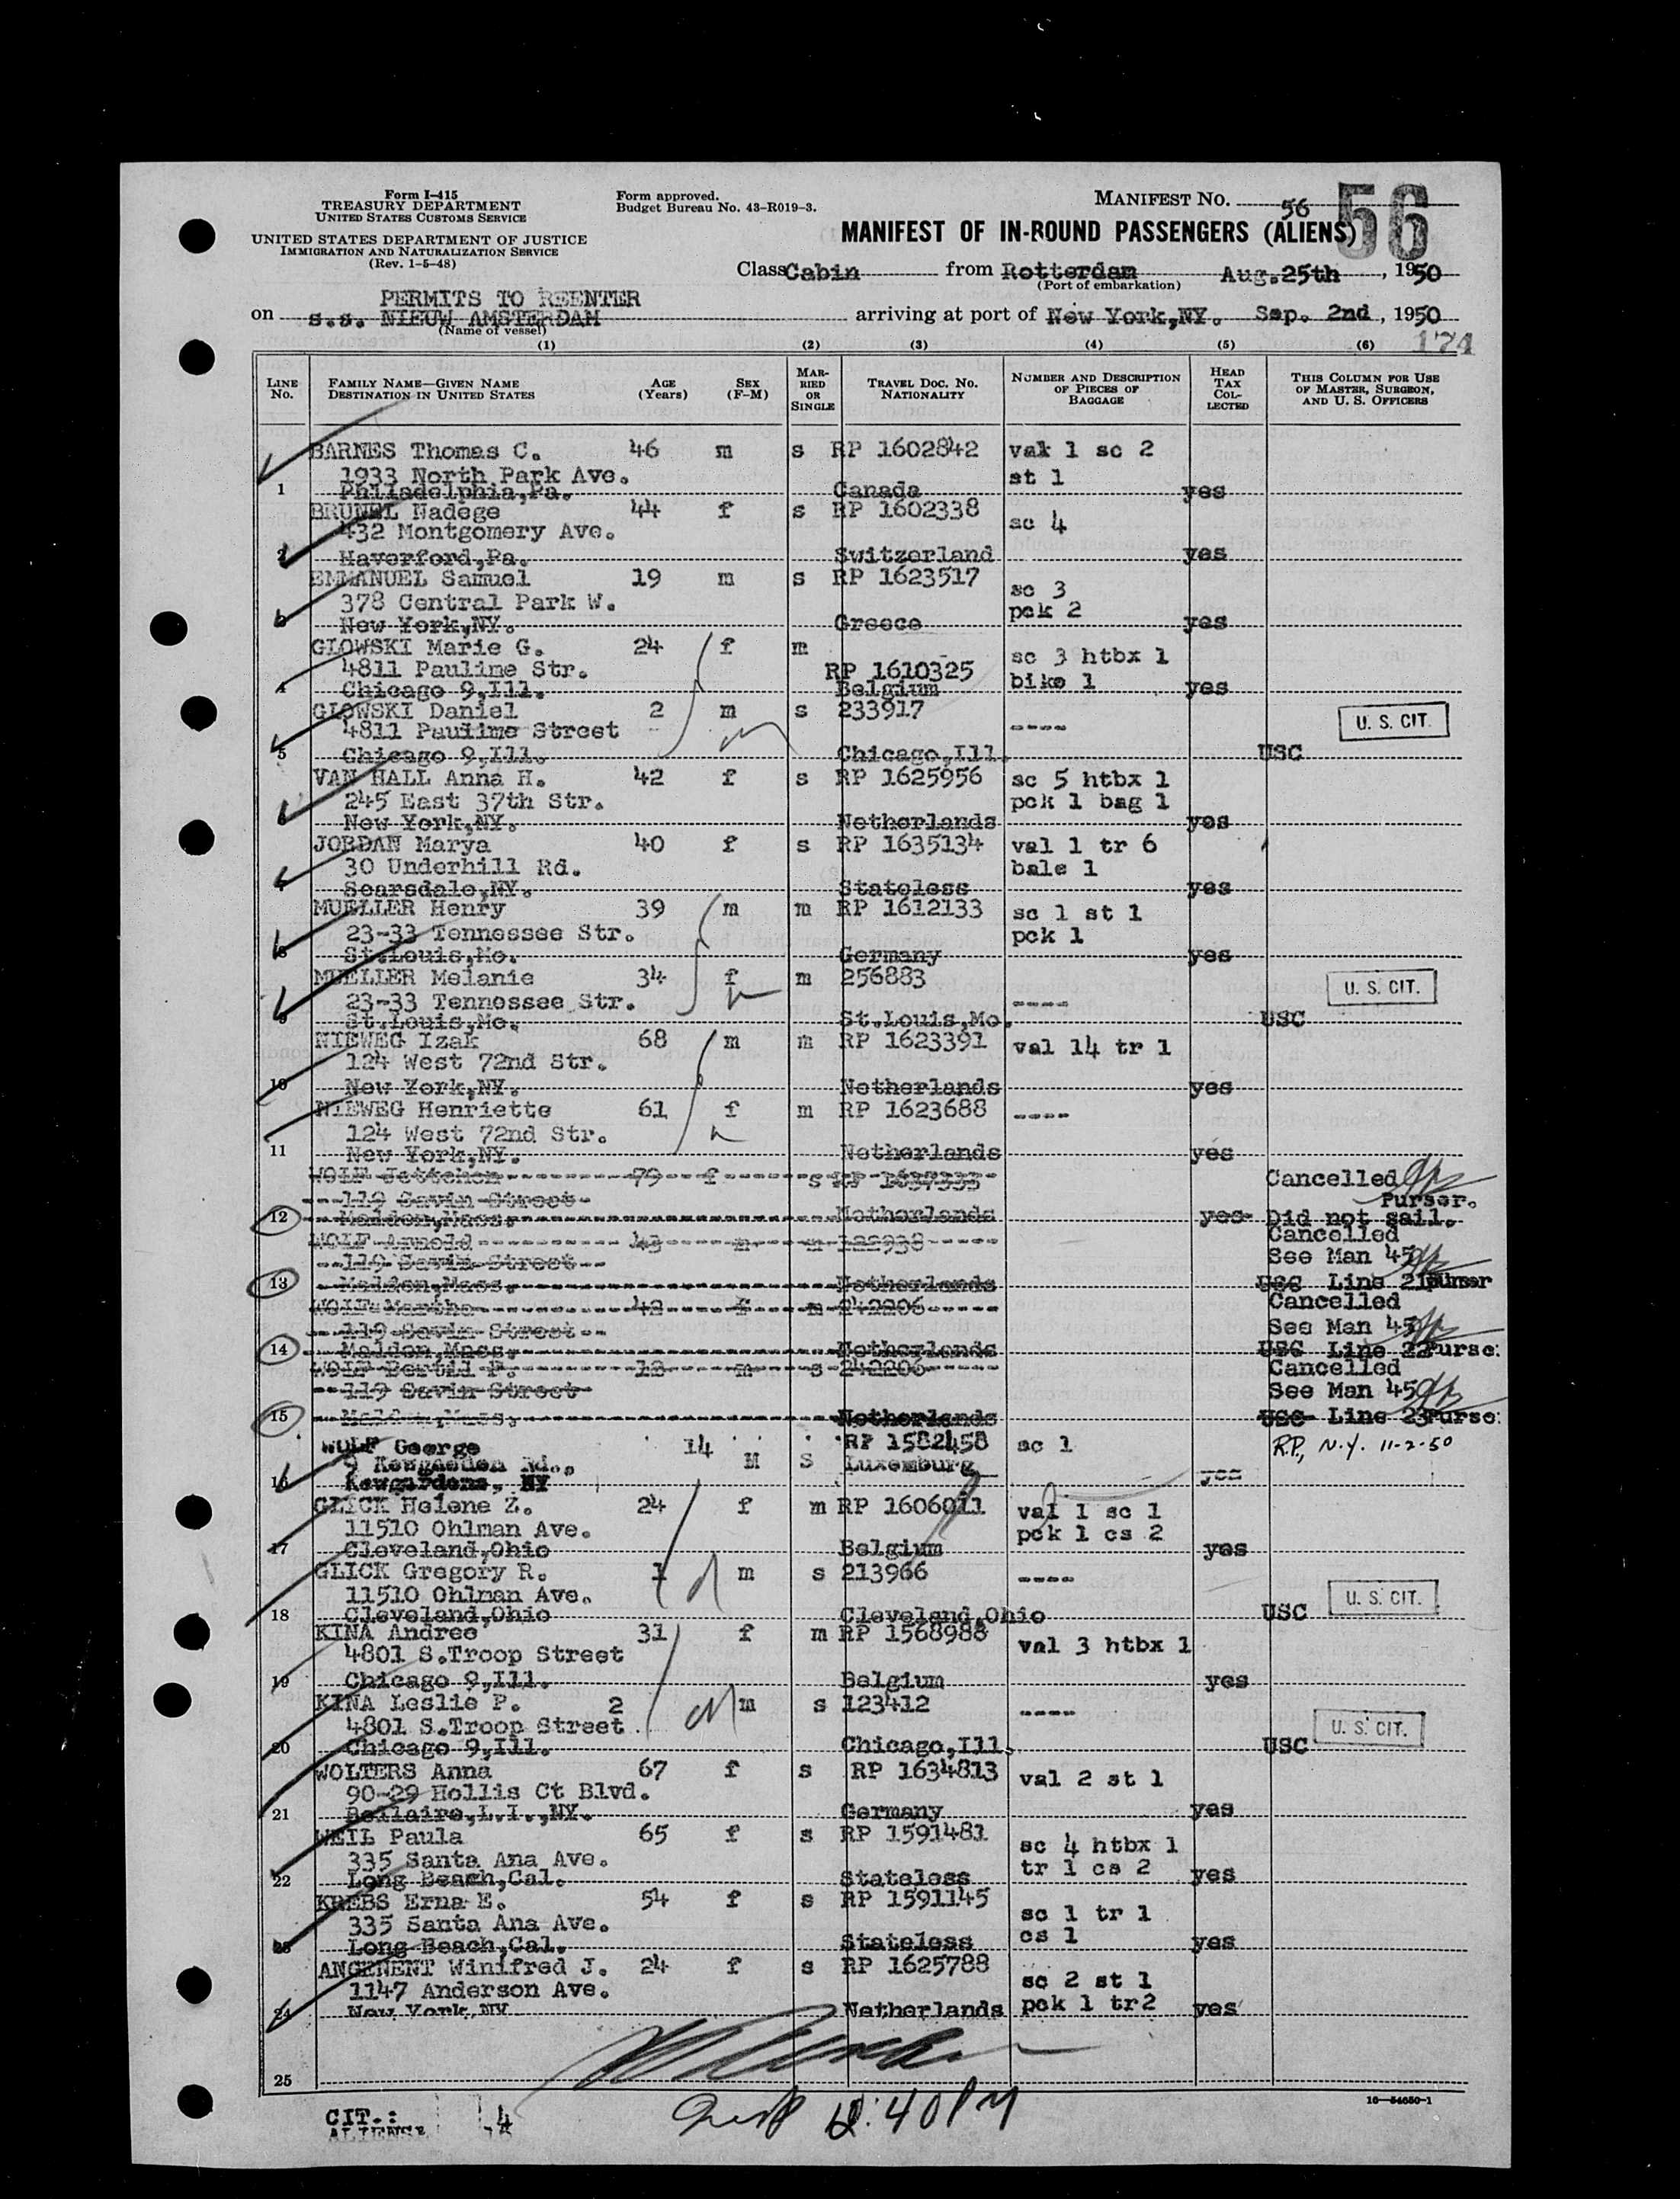 Form I-415
TREASURY DEPARTMENT
UNITED STATES CUSTOMS SERVICE
UNITED STATES DEPARTMENT OF JUSTICE
IMMIGRATION AND NATURALIZATION SERVICE
(Rev. 1-5-48)
Form approved.
Budget Bureau No. 43-R019-3.
MANIFEST NO. 56
56
MANIFEST OF IN-BOUND PASSENGERS (ALIENS)
Class Cabin from Rotterdam Aug.25th, 1950
(Port of embarkation)
PERMITS TO REENTER
on s.s. NIEUW AMSTERDAM arriving at port of New York,NY. Sep. 2nd, 1950
(Name of vessel)
174
(1) (2) (3) (4) (5) (6)
LINE No. FAMILY NAME—GIVEN NAME DESTINATION IN UNITED STATES AGE (Years) SEX (F-M) MARRIED OR SINGLE TRAVEL DOC. NO. NATIONALITY NUMBER AND DESCRIPTION OF PIECES OF BAGGAGE HEAD TAX COLLECTED THIS COLUMN FOR USE OF MASTER, SURGEON, AND U. S. OFFICERS
BARNES Thomas C. 46 m s RP 1602842 vak 1 sc 2
1933 North Park Ave. st 1
1 Philadelphia,Pa. Canada yes
BRUNEL Nadege 44 f s RP 1602338
432 Montgomery Ave. sc 4
2 Haverford,Pa. Switzerland yes
EMMANUEL Samuel 19 m s RP 1623517
378 Central Park W. sc 3
3 New York,NY. Greece pck 2 yes
GLOWSKI Marie G. 24 f m
4811 Pauline Str. RP 1610325 sc 3 htbx 1
4 Chicago 9,Ill. Belgium bike 1 yes
GLOWSKI Daniel 2 m s 233917
4811 Pauline Street ---- U. S. CIT.
5 Chicago 9,Ill. Chicago,Ill. USC
VAN HALL Anna H. 42 f s RP 1625956 sc 5 htbx 1
245 East 37th Str. pck 1 bag 1
6 New York,NY. Netherlands yes
JORDAN Marya 40 f s RP 1635134 val 1 tr 6
30 Underhill Rd. bale 1
7 Scarsdale,NY. Stateless yes
MUELLER Henry 39 m m RP 1612133 sc 1 st 1
23-33 Tennessee Str. pck 1
8 St.Louis,Mo. Germany yes
MUELLER Melanie 34 f m 256883
23-33 Tennessee Str. ---- U. S. CIT.
9 St.Louis,Mo. St.Louis,Mo. USC
NIEWEG Izak 68 m m RP 1623391 val 14 tr 1
124 West 72nd Str.
10 New York,NY. Netherlands yes
NIEWEG Henriette 61 f m RP 1623688 ----
124 West 72nd Str.
11 New York,NY. Netherlands yes
WOLF 79 f s RP 1637333 Cancelled
119 Savin Street Purser.
12 Malden,Mass. Netherlands yes Did not sail.
WOLF Arnold 43 m m 122938 Cancelled
119 Savin Street See Man 45
13 Malden,Mass. Netherlands USC Line 21 Purser
WOLF Martha 42 f m 242206 Cancelled
119 Savin Street See Man 45
14 Malden,Mass. Netherlands USC Line 22 Purser
WOLF Bertil P. 12 m s 242206 Cancelled
119 Savin Street See Man 45
15 Malden,Mass. Netherlands USC Line 23 Purser
WOLF George 14 M S RP 1582458 sc 1 R.P., N.Y. 11-2-50
9 Kewgarden Rd., Luxemburg
16 Kewgardens, NY yes
GLICK Helene Z. 24 f m RP 1606011 val 1 sc 1
11510 Ohlman Ave. pck 1 cs 2
17 Cleveland,Ohio Belgium yes
GLICK Gregory R. 1 m s 213966 ----
11510 Ohlman Ave. U. S. CIT.
18 Cleveland,Ohio Cleveland,Ohio USC
KINA Andree 31 f m RP 1568988 val 3 htbx 1
4801 S.Troop Street
19 Chicago 9,Ill. Belgium yes
KINA Leslie P. 2 m s 123412 ----
4801 S.Troop Street U. S. CIT.
20 Chicago 9,Ill. Chicago,Ill. USC
WOLTERS Anna 67 f s RP 1634813 val 2 st 1
90-29 Hollis Ct Blvd.
21 Bellaire,L.I.,NY. Germany yes
WEIL Paula 65 f s RP 1591481 sc 4 htbx 1
335 Santa Ana Ave. tr 1 cs 2
22 Long Beach,Cal. Stateless yes
KREBS Erna E. 54 f s RP 1591145 sc 1 tr 1
335 Santa Ana Ave. cs 1
23 Long Beach,Cal. Stateless yes
ANGENENT Winifred J. 24 f s RP 1625788 sc 2 st 1
1147 Anderson Ave. pck 1 tr2
24 New York,NY Netherlands yes
25
16—54050-1
CIT.: 4
2:40PM